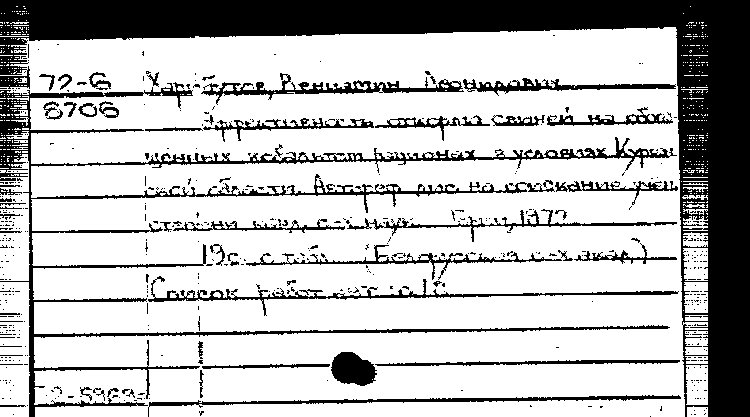 72-6 Харитутов, Вениамин Леонидович
8706 Эффективность откорма свиней на обога-
щенных кобальтом рационах в условиях Курган-
ской области. Автореф. дис. на соискание учен.
степени канд. с-х наук. Горки, 1972.
19 с. с табл. (Белорусская с-х акад.)
Список работ авт.: с. 18